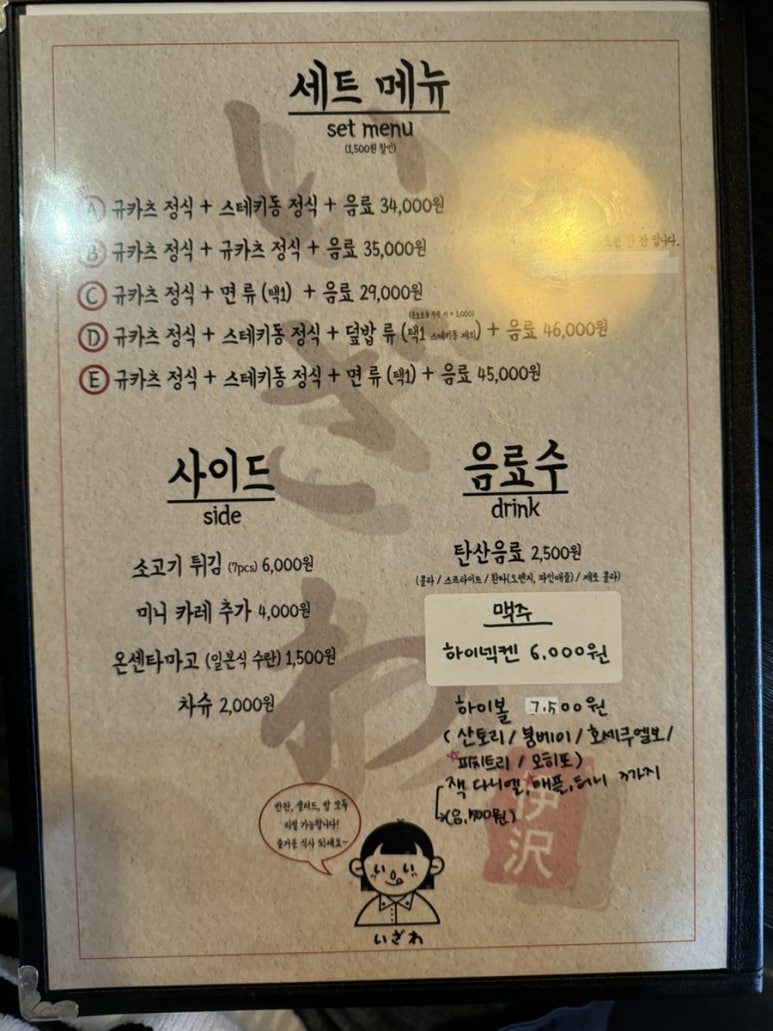 세트 메뉴
set menu
(1,500원 할인)
A 규카츠 정식 + 스테키동 정식 + 음료 34,000원
B 규카츠 정식 + 규카츠 정식 + 음료 35,000원
잔 입니다.
C 규카츠 정식 + 면 류 (택1) + 음료 29,000원
D 규카츠 정식 + 스테키동 정식 + 덮밥 류 (택1 스테키동 제외) + 음료 46,000원
E 규카츠 정식 + 스테키동 정식 + 면 류 (택1) + 음료 45,000원
사이드
side
소고기 튀김 (7pcs) 6,000원
미니 카레 추가 4,000원
온센타마고 (일본식 수란) 1,500원
차슈 2,000원
음료수
drink
탄산음료 2,500원
(콜라 / 스프라이트 / 환타(오렌지, 파인애플) / 제로 콜라)
맥주
하이넥켄 6.000원
하이볼 7.500원
(산토리 / 봄베이 / 호세쿠엘보 /
피치트리 / 모히또)
잭 다니엘, 애플, 허니 3가지
반찬, 샐러드, 밥 모두
리필 가능합니다!
즐거운 식사 되세요~
いざわ
いざわ
伊沢